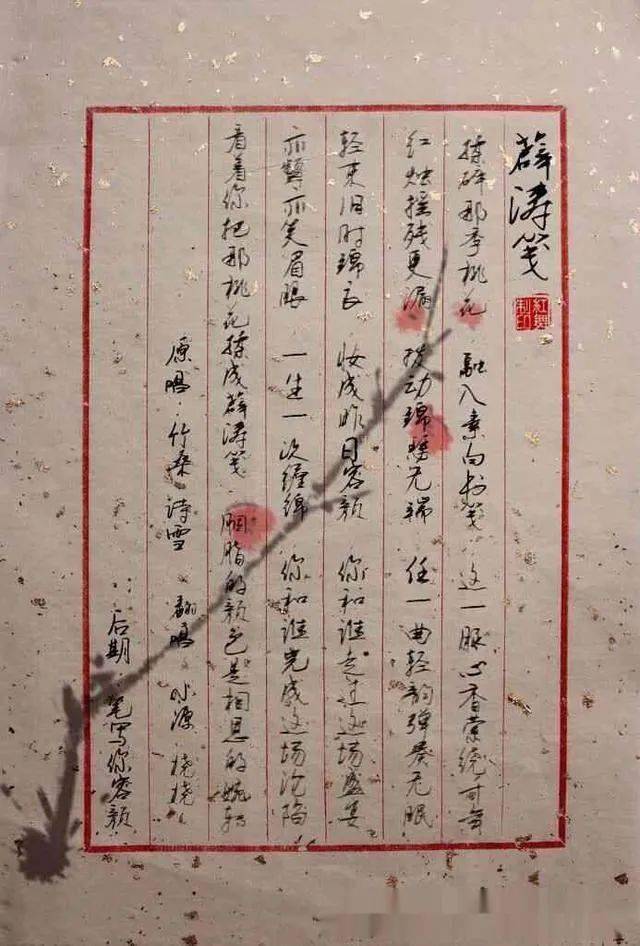 薛涛笺
揉碎那季桃花 融入素白书笺 这一脉心香萦绕
红烛摇残更漏 拨动锦瑟无端 任一曲轻韵弹奏无眠
轻束旧时锦衣 妆成昨日容颜 你和谁走进这场盛宴
亦颦亦笑眉眼 一生一次缠绵 你和谁完成这场沦陷
看着你把那桃花揉成薛涛笺 胭脂的颜色是相思的婉转
原唱：竹桑 诗雪 翻唱：源
后期：笔写你容颜